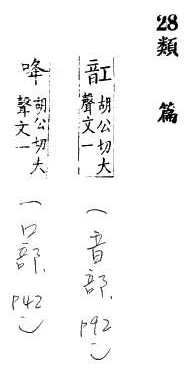 28類 篇
䪦 胡公切大
聲文一
（音部, p92）
㖓 胡公切大
聲文一
（口部, p42）